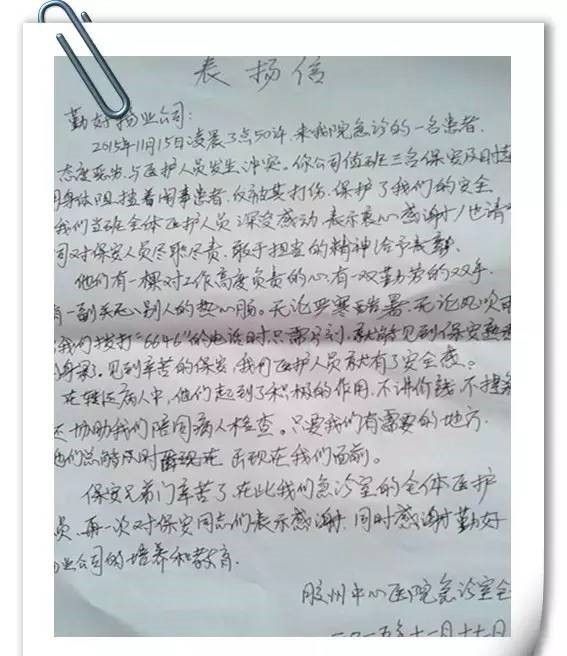 表扬信
勤好物业公司:
2015年11月15日凌晨3点50许,来我院急诊的一名患者,
态度恶劣,与医护人员发生冲突。你公司值班三名保安及时赶
用身体阻挡着闹事患者,反被其打伤,保护了我们的安全
我们当班全体医护人员深受感动,表示衷心感谢!也请
司对保安人员尽职尽责,敢于担当的精神给予表彰。
他们有一棵对工作高度负责的心,有一双勤劳的双手
有一副关心别人的热心肠。无论严寒酷暑,无论风吹雨
我们拨打“6646”的电话时,只需分刻,就能见到保安熟悉
身影。见到辛苦的保安,我们医护人员就有了安全感。
在转运病人中,他们起到了积极的作用,不讲价钱,不提条
还协助我们陪同病人检查。只要我们有需要的地方,
他们总能及时 出现在我们面前。
保安兄弟门辛苦了,在此我们急诊室的全体医护
员,再一次对保安同志们表示感谢,同时感谢勤好
业公司的培养和教育.
胶州中心医院急诊室全
二〇一五年十一月十七日